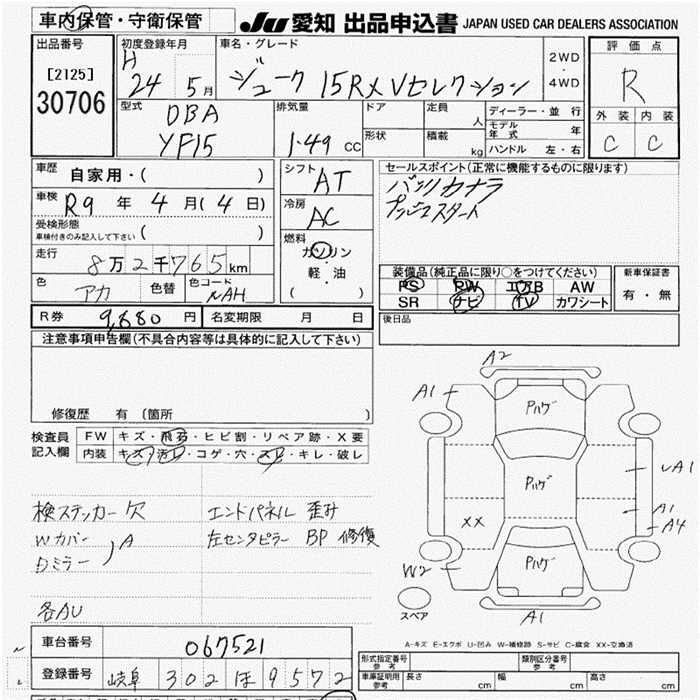 車内保管・守衛保管
JU 愛知 出品申込書 JAPAN USED CAR DEALERS ASSOCIATION
出品番号
[2125]
30706
初度登録年月
H 24 5月
車名・グレード
ジューク 15RX Vセレクション
2WD
・
4WD
評価点
R
外装 内装
C C
型式
DBA
YF15
排気量
1.49 CC
ドア
定員
人
形状
積載
kg
ディーラー・並行
モデル年式 年
ハンドル 左・右
車歴
自家用・( )
車検
R9 年 4 月(4 日)
受検形態
車検付きのみ記入して下さい ( )
走行
8万2千765km
色
アカ
色替
色コード
NAH
シフト
AT
冷房
AC
燃料
ガソリン
・
軽・油
( )
セールスポイント(正常に機能するものに限ります)
バックカメラ
プッシュスタート
装備品(純正品に限り○をつけてください)
PS PW エアB AW
SR ナビ TV カワシート
新車保証書
有・無
後日品
R券 9,880 円
名変期限 月 日
注意事項申告欄(不具合内容等は具体的に記入して下さい)
修復歴 有 (箇所 )
検査員記入欄
FW キズ・飛石・ヒビ割・リペア跡・X要
内装 キズ・汚レ・コゲ・穴・スレ・キレ・破レ
検ステッカー欠
Wカバー
Dミラー
A
各AU
エンドパネル 歪み
左センタピラー BP 修復
A2
A1
Pハゲ
Pハゲ
UA1
A1
A4
XX
W2
Pハゲ
A1
スペア
A-キズ E-エクボ U-凹み W-補修跡 S-サビ C-腐食 XX-交換済
車台番号
067521
登録番号
岐阜 302 ほ 9572
形式指定番号
参考
類別区分番号
参考
車庫証明用
参考
長さ cm
幅 cm
高さ cm